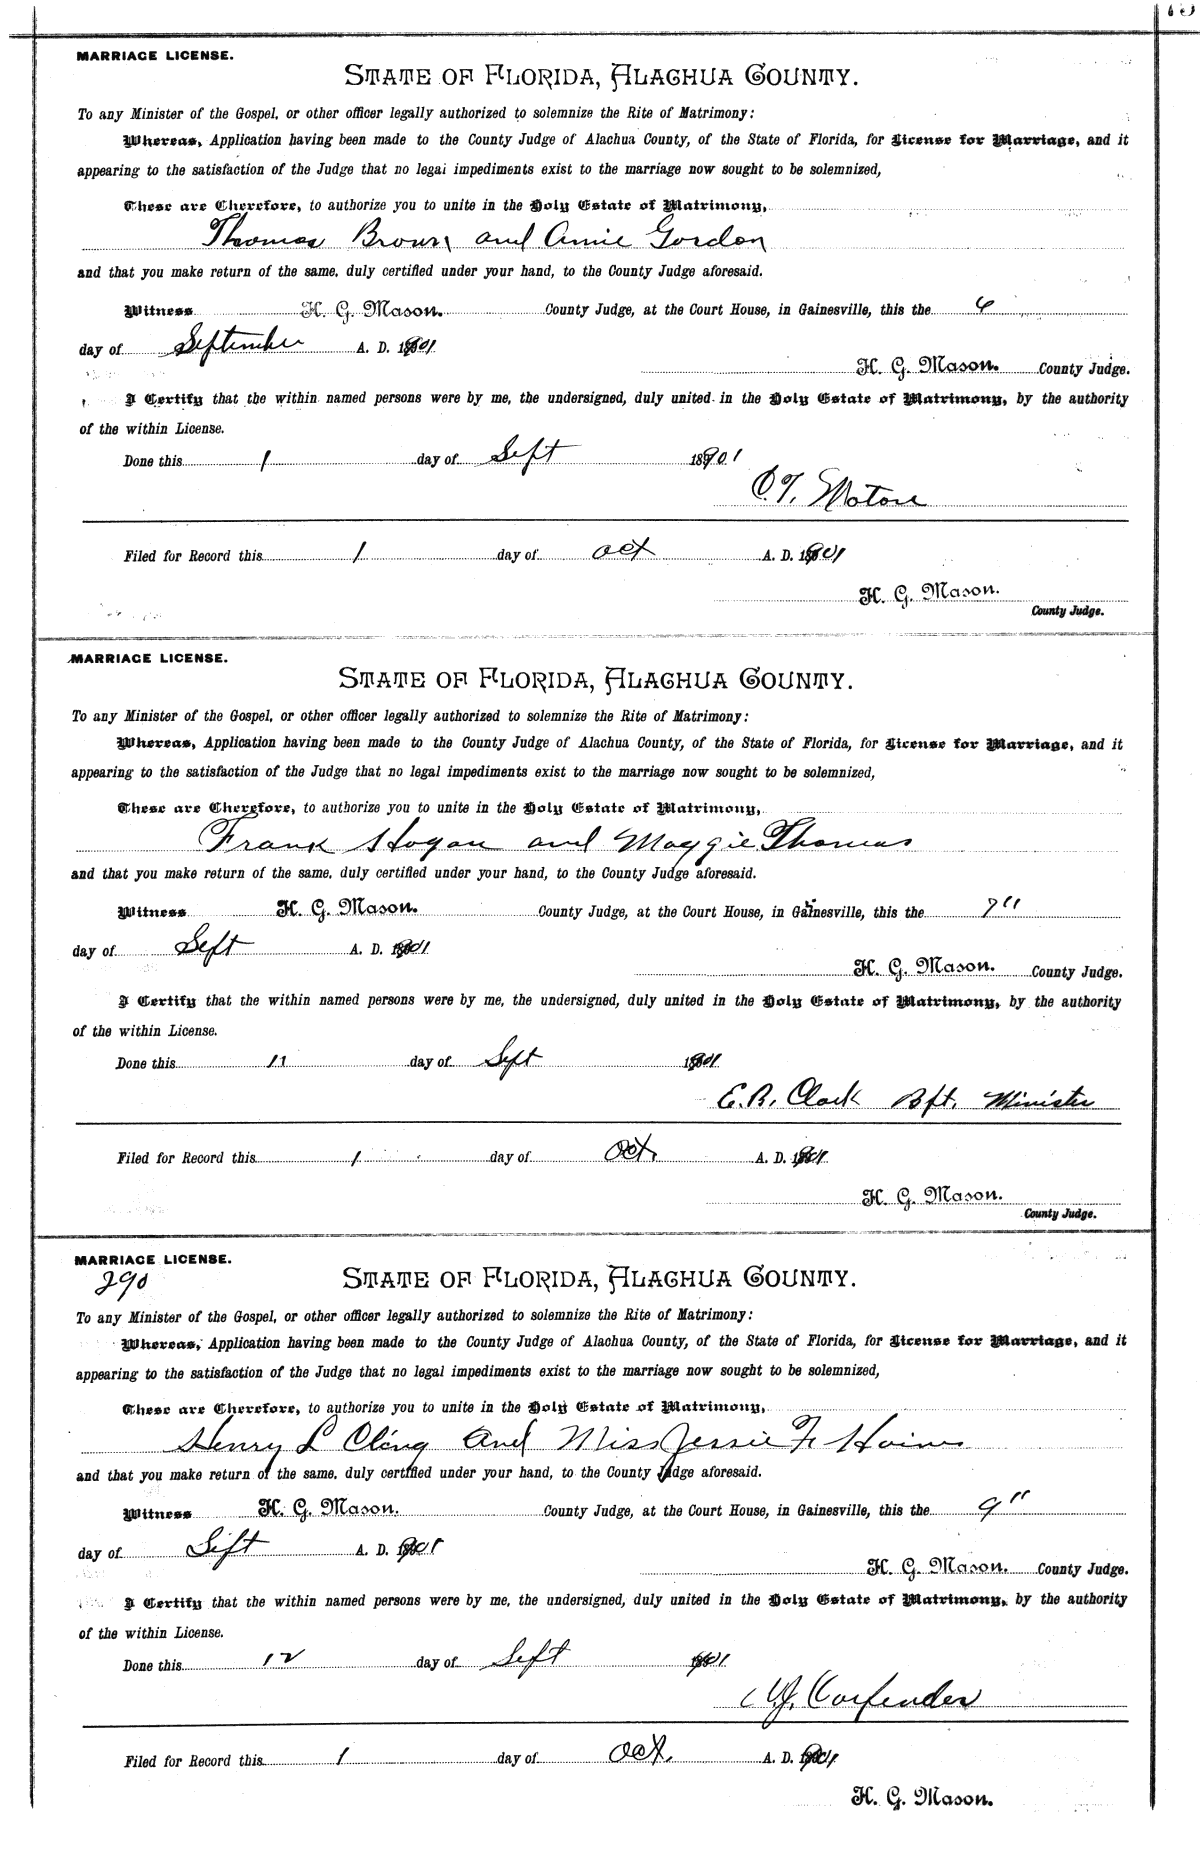 MARRIAGE LICENSE.
STATE OF FLORIDA, ALACHUA COUNTY.
To any Minister of the Gospel, or other officer legally authorized to solemnize the Rite of Matrimony:
Whereas, Application having been made to the County Judge of Alachua County, of the State of Florida, for License for Marriage, and it
appearing to the satisfaction of the Judge that no legal impediments exist to the marriage now sought to be solemnized,
These are Therefore, to authorize you to unite in the Holy Estate of Matrimony,
Thomas Brown and Annie Gordon
and that you make return of the same, duly certified under your hand, to the County Judge aforesaid.
Witness H. G. Mason. County Judge, at the Court House, in Gainesville, this the 6
day of September A. D. 1901
H. G. Mason. County Judge.
I Certify that the within named persons were by me, the undersigned, duly united in the Holy Estate of Matrimony, by the authority
of the within License.
Done this 1 day of Sept 1901
Filed for Record this 1 day of Oct A. D. 1901
H. G. Mason.
County Judge.
MARRIAGE LICENSE.
STATE OF FLORIDA, ALACHUA COUNTY.
To any Minister of the Gospel, or other officer legally authorized to solemnize the Rite of Matrimony:
Whereas, Application having been made to the County Judge of Alachua County, of the State of Florida, for License for Marriage, and it
appearing to the satisfaction of the Judge that no legal impediments exist to the marriage now sought to be solemnized,
These are Therefore, to authorize you to unite in the Holy Estate of Matrimony,
Frank Hogan and Maggie Thomas
and that you make return of the same, duly certified under your hand, to the County Judge aforesaid.
Witness H. G. Mason. County Judge, at the Court House, in Gainesville, this the 7"
day of Sept A. D. 1901
H. G. Mason. County Judge.
I Certify that the within named persons were by me, the undersigned, duly united in the Holy Estate of Matrimony, by the authority
of the within License.
Done this 11 day of Sept 1901
E. B. Clark Bpt. Minister
Filed for Record this 1 day of Oct. A. D. 1901
H. G. Mason.
County Judge.
MARRIAGE LICENSE.
290
STATE OF FLORIDA, ALACHUA COUNTY.
To any Minister of the Gospel, or other officer legally authorized to solemnize the Rite of Matrimony:
Whereas, Application having been made to the County Judge of Alachua County, of the State of Florida, for License for Marriage, and it
appearing to the satisfaction of the Judge that no legal impediments exist to the marriage now sought to be solemnized,
These are Therefore, to authorize you to unite in the Holy Estate of Matrimony,
Henry L Cling and Miss Jessie F.
and that you make return of the same, duly certified under your hand, to the County Judge aforesaid.
Witness H. G. Mason. County Judge, at the Court House, in Gainesville, this the 9"
day of Sept A. D. 1901
H. G. Mason. County Judge.
I Certify that the within named persons were by me, the undersigned, duly united in the Holy Estate of Matrimony, by the authority
of the within License.
Done this 12 day of Sept 1901
Carpender
Filed for Record this 1 day of Oct. A. D. 1901
H. G. Mason.